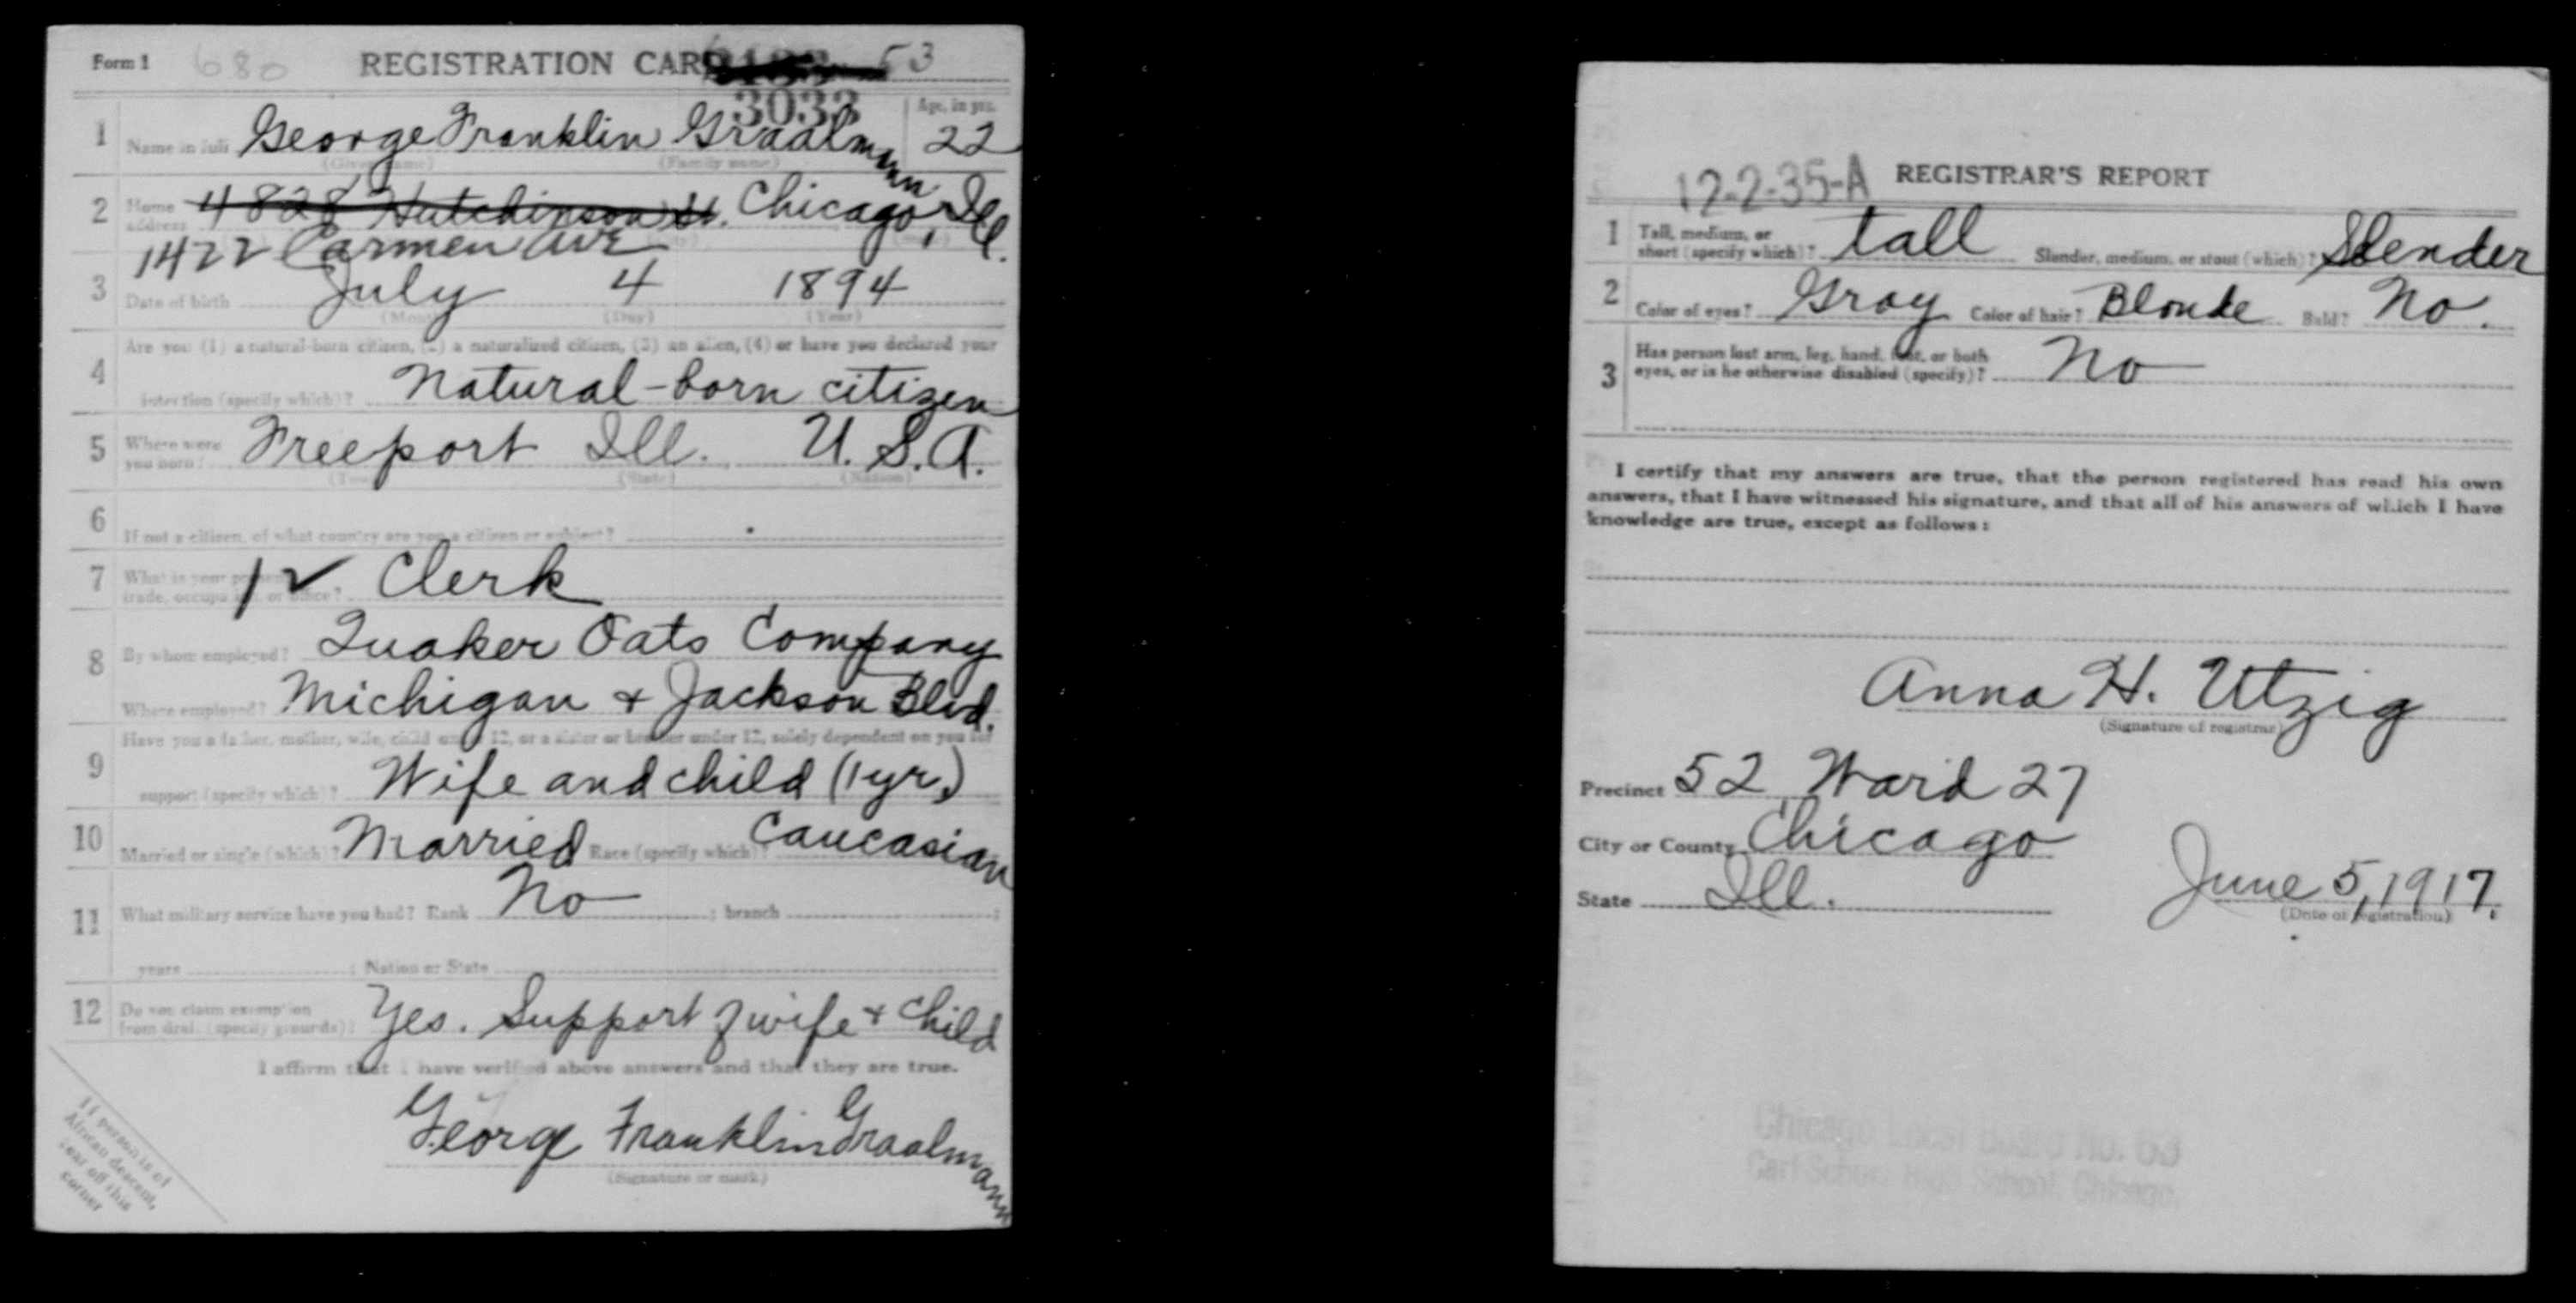 Form 1 680 REGISTRATION CARD 53
3033
1 Name in full George Franklin Graalmann Age, in yrs. 22
(Given name) (Family name)
2 Home address 4828 Hutchinson St. Chicago, Ill.
1422 Carmen Ave
3 Date of birth July 4 1894
(Month) (Day) (Year)
Are you (1) a natural-born citizen, (2) a naturalized citizen, (3) an alien, (4) or have you declared your
4 intention (specify which)? Natural-born citizen
5 Where were you born? Freeport Ill. U.S.A.
(Town) (State) (Nation)
6 If not a citizen, of what country are you a citizen or subject?
7 What is your present trade, occupation, or office? Clerk
8 By whom employed? Quaker Oats Company
Where employed? Michigan + Jackson Blvd.
9 Have you a father, mother, wife, child under 12, or a sister or brother under 12, solely dependent on you for
support (specify which)? Wife and child (1 yr.)
10 Married or single (which)? Married Race (specify which)? Caucasian
11 What military service have you had? Rank No ; branch ;
years ; Nation or State
12 Do you claim exemption from draft (specify grounds)? Yes. Support of wife + child
I affirm that I have verified above answers and that they are true.
George Franklin Graalmann
(Signature or mark)
If person is of
African descent,
tear off this
corner
12-2-35-A REGISTRAR'S REPORT
1 Tall, medium, or short (specify which)? tall Slender, medium, or stout (which)? Slender
2 Color of eyes? Gray Color of hair? Blonde Bald? No.
3 Has person lost arm, leg, hand, foot, or both
eyes, or is he otherwise disabled (specify)? No
I certify that my answers are true, that the person registered has read his own
answers, that I have witnessed his signature, and that all of his answers of which I have
knowledge are true, except as follows:
Anna H. Utzig
(Signature of registrar)
Precinct 52 Ward 27
City or County Chicago
State Ill. June 5, 1917.
(Date of registration)
Chicago Local Board No. 53
Carl Schurz High School, Chicago.